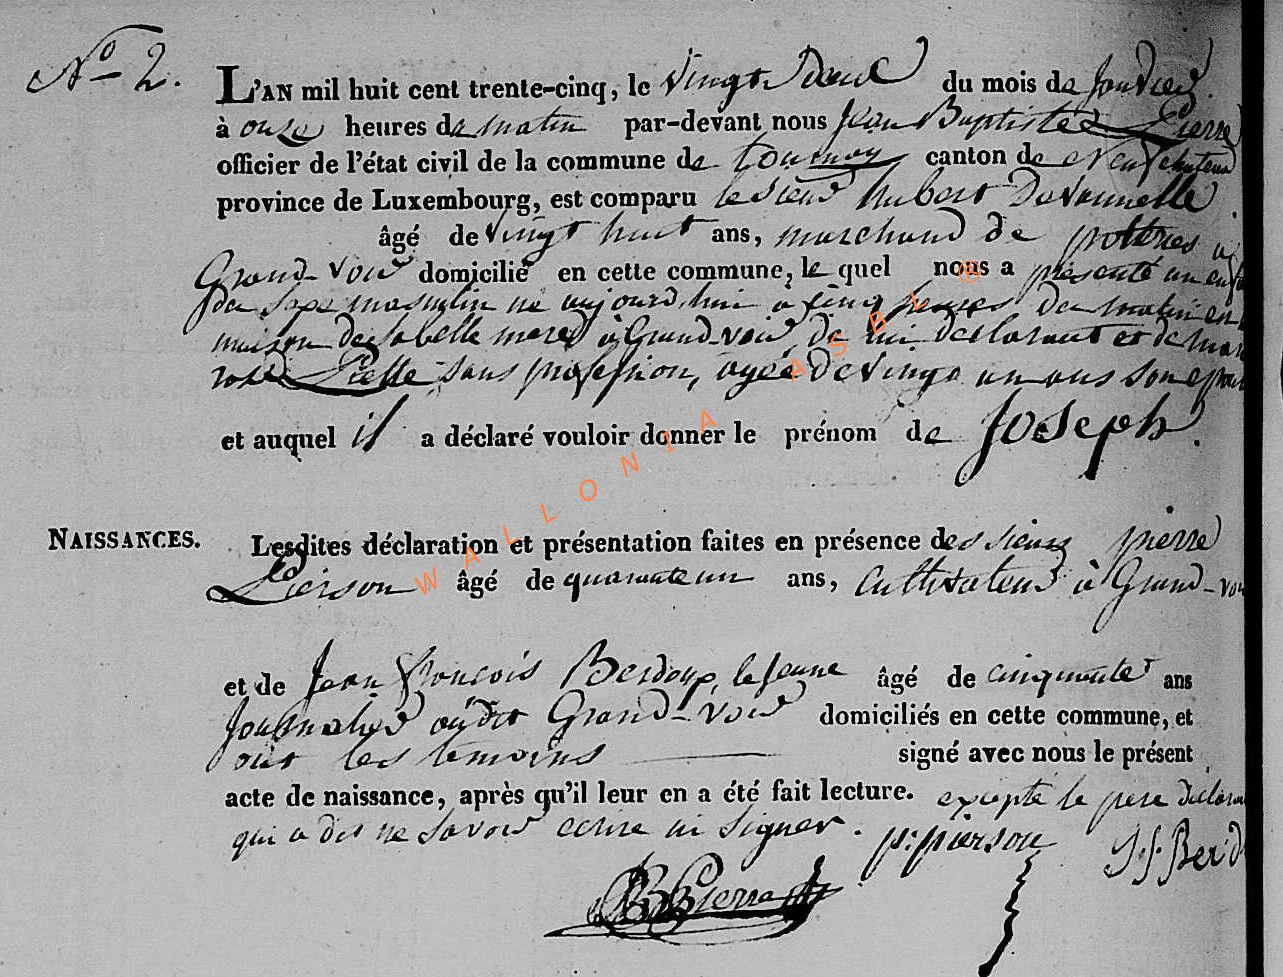 No 2.
L'AN mil huit cent trente-cinq, le vingt deux du mois de Janvier.
à onze heures du matin par-devant nous Jean Baptiste Pierre
officier de l'état civil de la commune de tournay canton de Neufchateau
province de Luxembourg, est comparu le sieur hubert Devaunelle
âgé de vingt huit ans, marchand de potteries à
Grand-voir domicilié en cette commune, le quel nous a présenté un enf
du sexe masculin né aujourd'hui à cinq heures du matin en
maison de isabelle mared à Grand-voir, de lui déclarant et de mar
rose Piette sans profession, agée de vingt un ans son epou
et auquel il a déclaré vouloir donner le prénom de Joseph.
NAISSANCES. Lesdites déclaration et présentation faites en présence des sieurs pierre
Pierson âgé de quarante un ans, cultivateur à Grand-voi
et de Jean françois Berdoup le jeune âgé de cinquante ans
Journalier audit Grand-voir domiciliés en cette commune, et
ont les temoins signé avec nous le présent
acte de naissance, après qu'il leur en a été fait lecture. excepté le pere declara
qui a dit ne savoir ecrire ni signer. p: pierson J. f. Berd
JB Pierre
WALLONIA ASBL ®